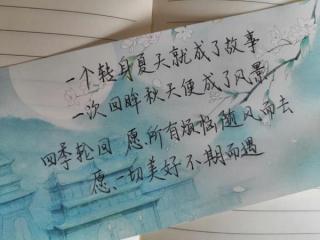 一个转身夏天就成了故事
一次回眸秋天便成了风景
四季轮回 愿.所有烦恼随风而去
愿.一切美好不期而遇